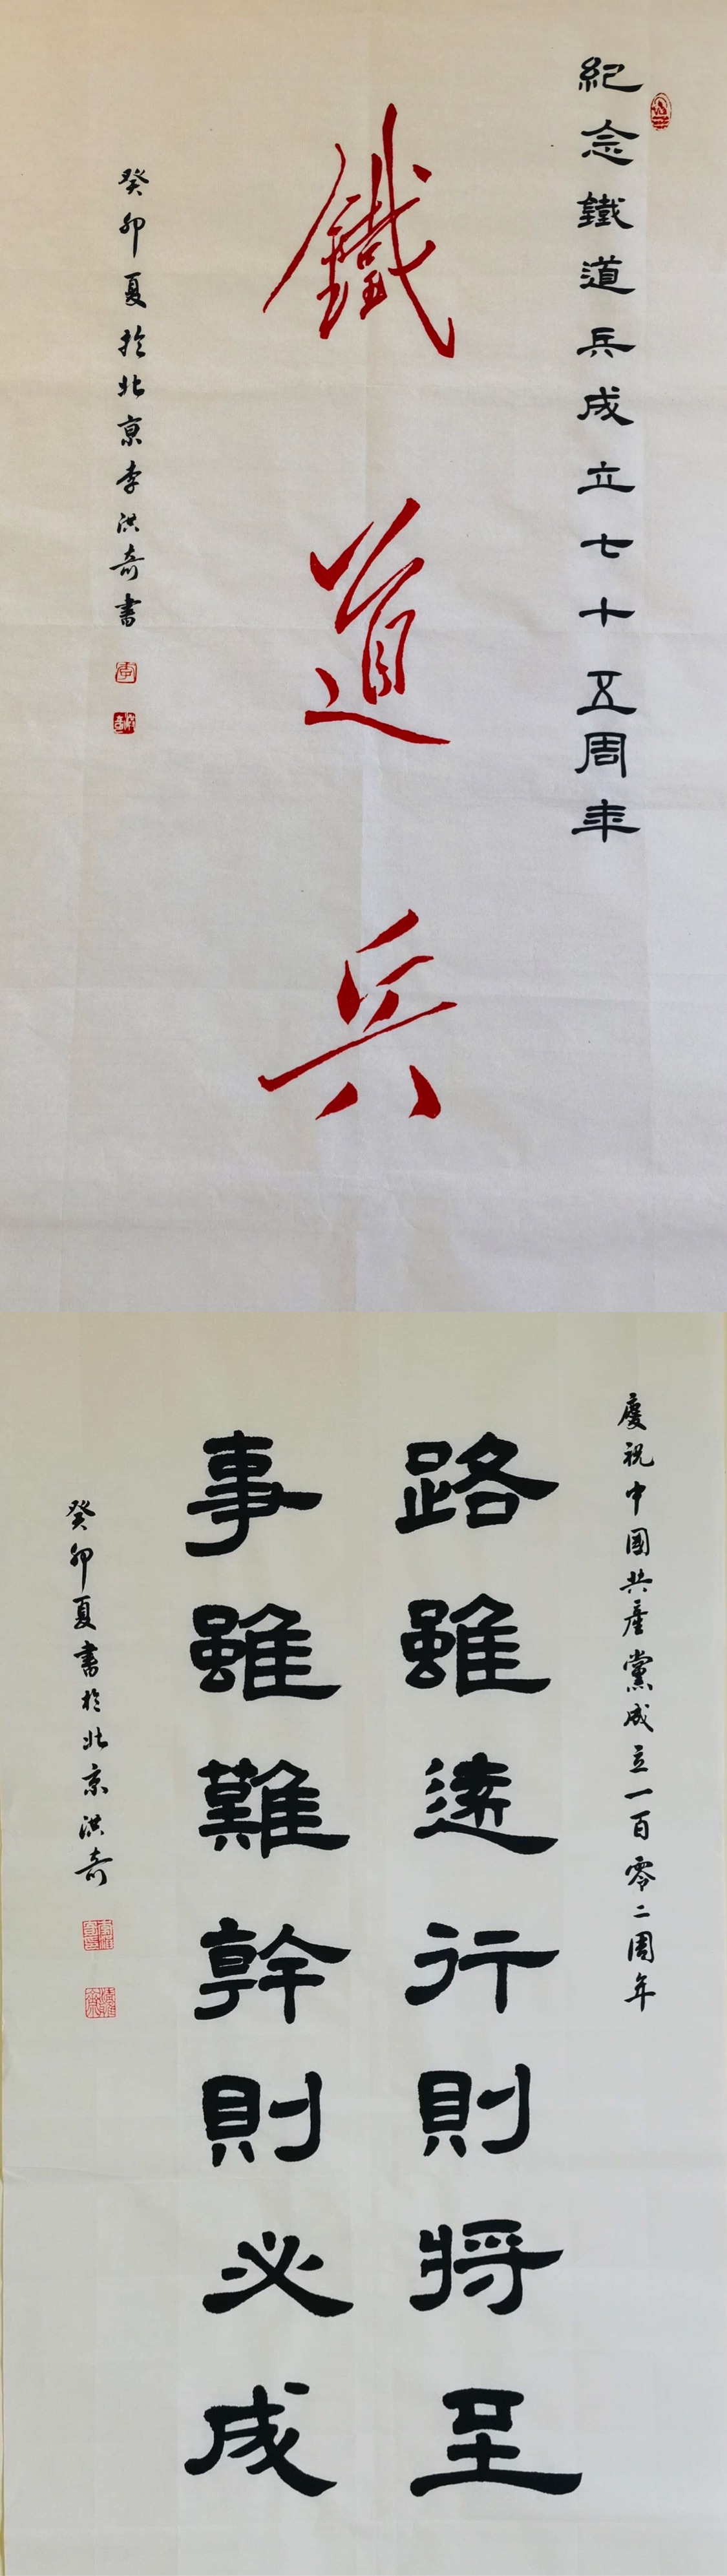 紀念鐵道兵成立七十五周年
鐵道兵
癸卯夏於北京李洪奇書
慶祝中國共產黨成立一百零二周年
路雖遠行則將至
事雖難幹則必成
癸卯夏書於北京洪奇